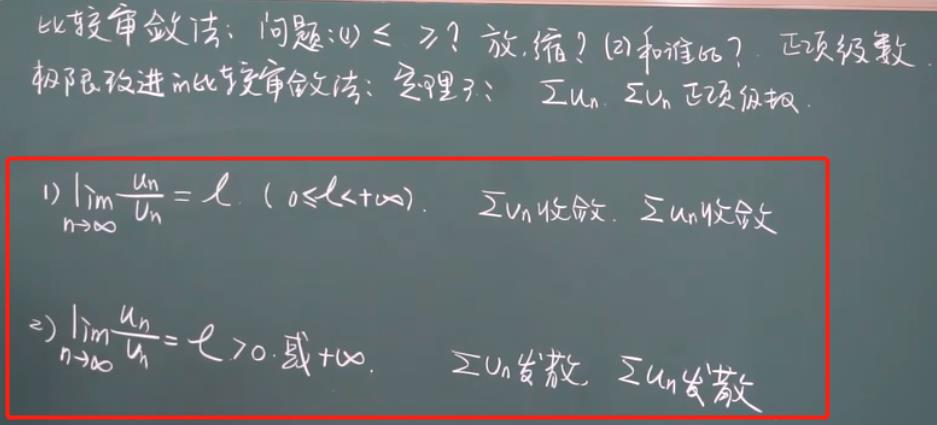 比较审敛法: 问题:(1) ≤ ≥? 放.缩? (2)和谁比? 正项级数.
极限改进的比较审敛法: 定理3: Σun. Σvn 正项级数.
1) lim n→∞ un/vn = l. (0≤l<+∞). Σvn收敛. Σun收敛
2) lim n→∞ un/vn = l >0.或+∞. Σvn发散, Σun发散